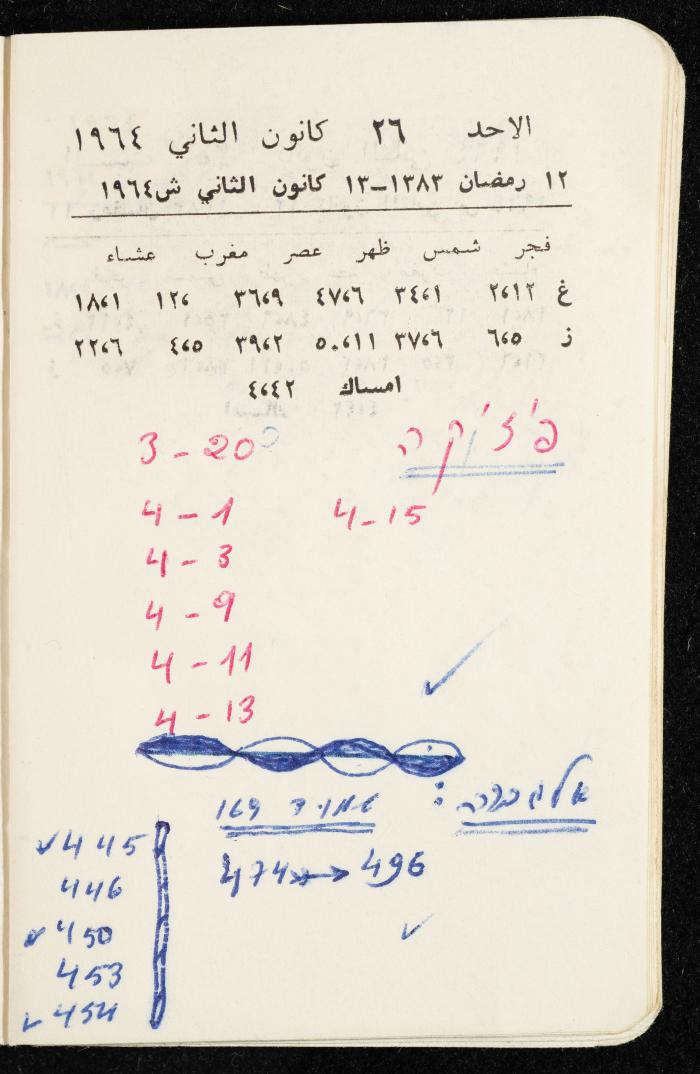 الاحد ٢٦ كانون الثاني ١٩٦٤
١٢ رمضان ١٣٨٣–١٣ كانون الثاني ش١٩٦٤
فجر شمس ظهر عصر مغرب عشاء
غ ٢،١٢ ٣٤،١ ٤٧،٦ ٣٦،٩ ١٢، ١٨،١
ز ٦،٥ ٣٧،٦ ٥٠،١١ ٣٩،٢ ٤،٥ ٢٢،٦
امساك ٤،٤٢
פיזיקה
3 - 20
4 - 1 4 - 15
4 - 3
4 - 9
4 - 11
4 - 13
אלגברה: עמוד 169
474 → 496
445
446
450
453
454